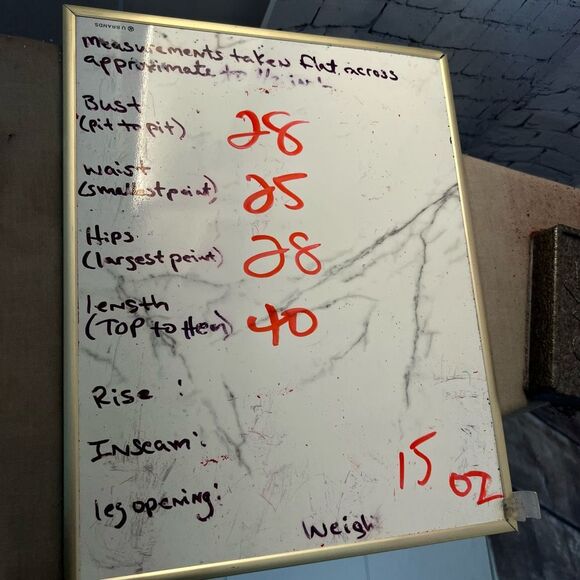 U BRANDS
measurements taken flat, across
approximate to
Bust
(pit to pit) 28
waist
(smallest point) 25
Hips
(largest point) 28
length
(TOP to Hem) 40
Rise :
Inseam:
leg opening:
15 oz
Weigh